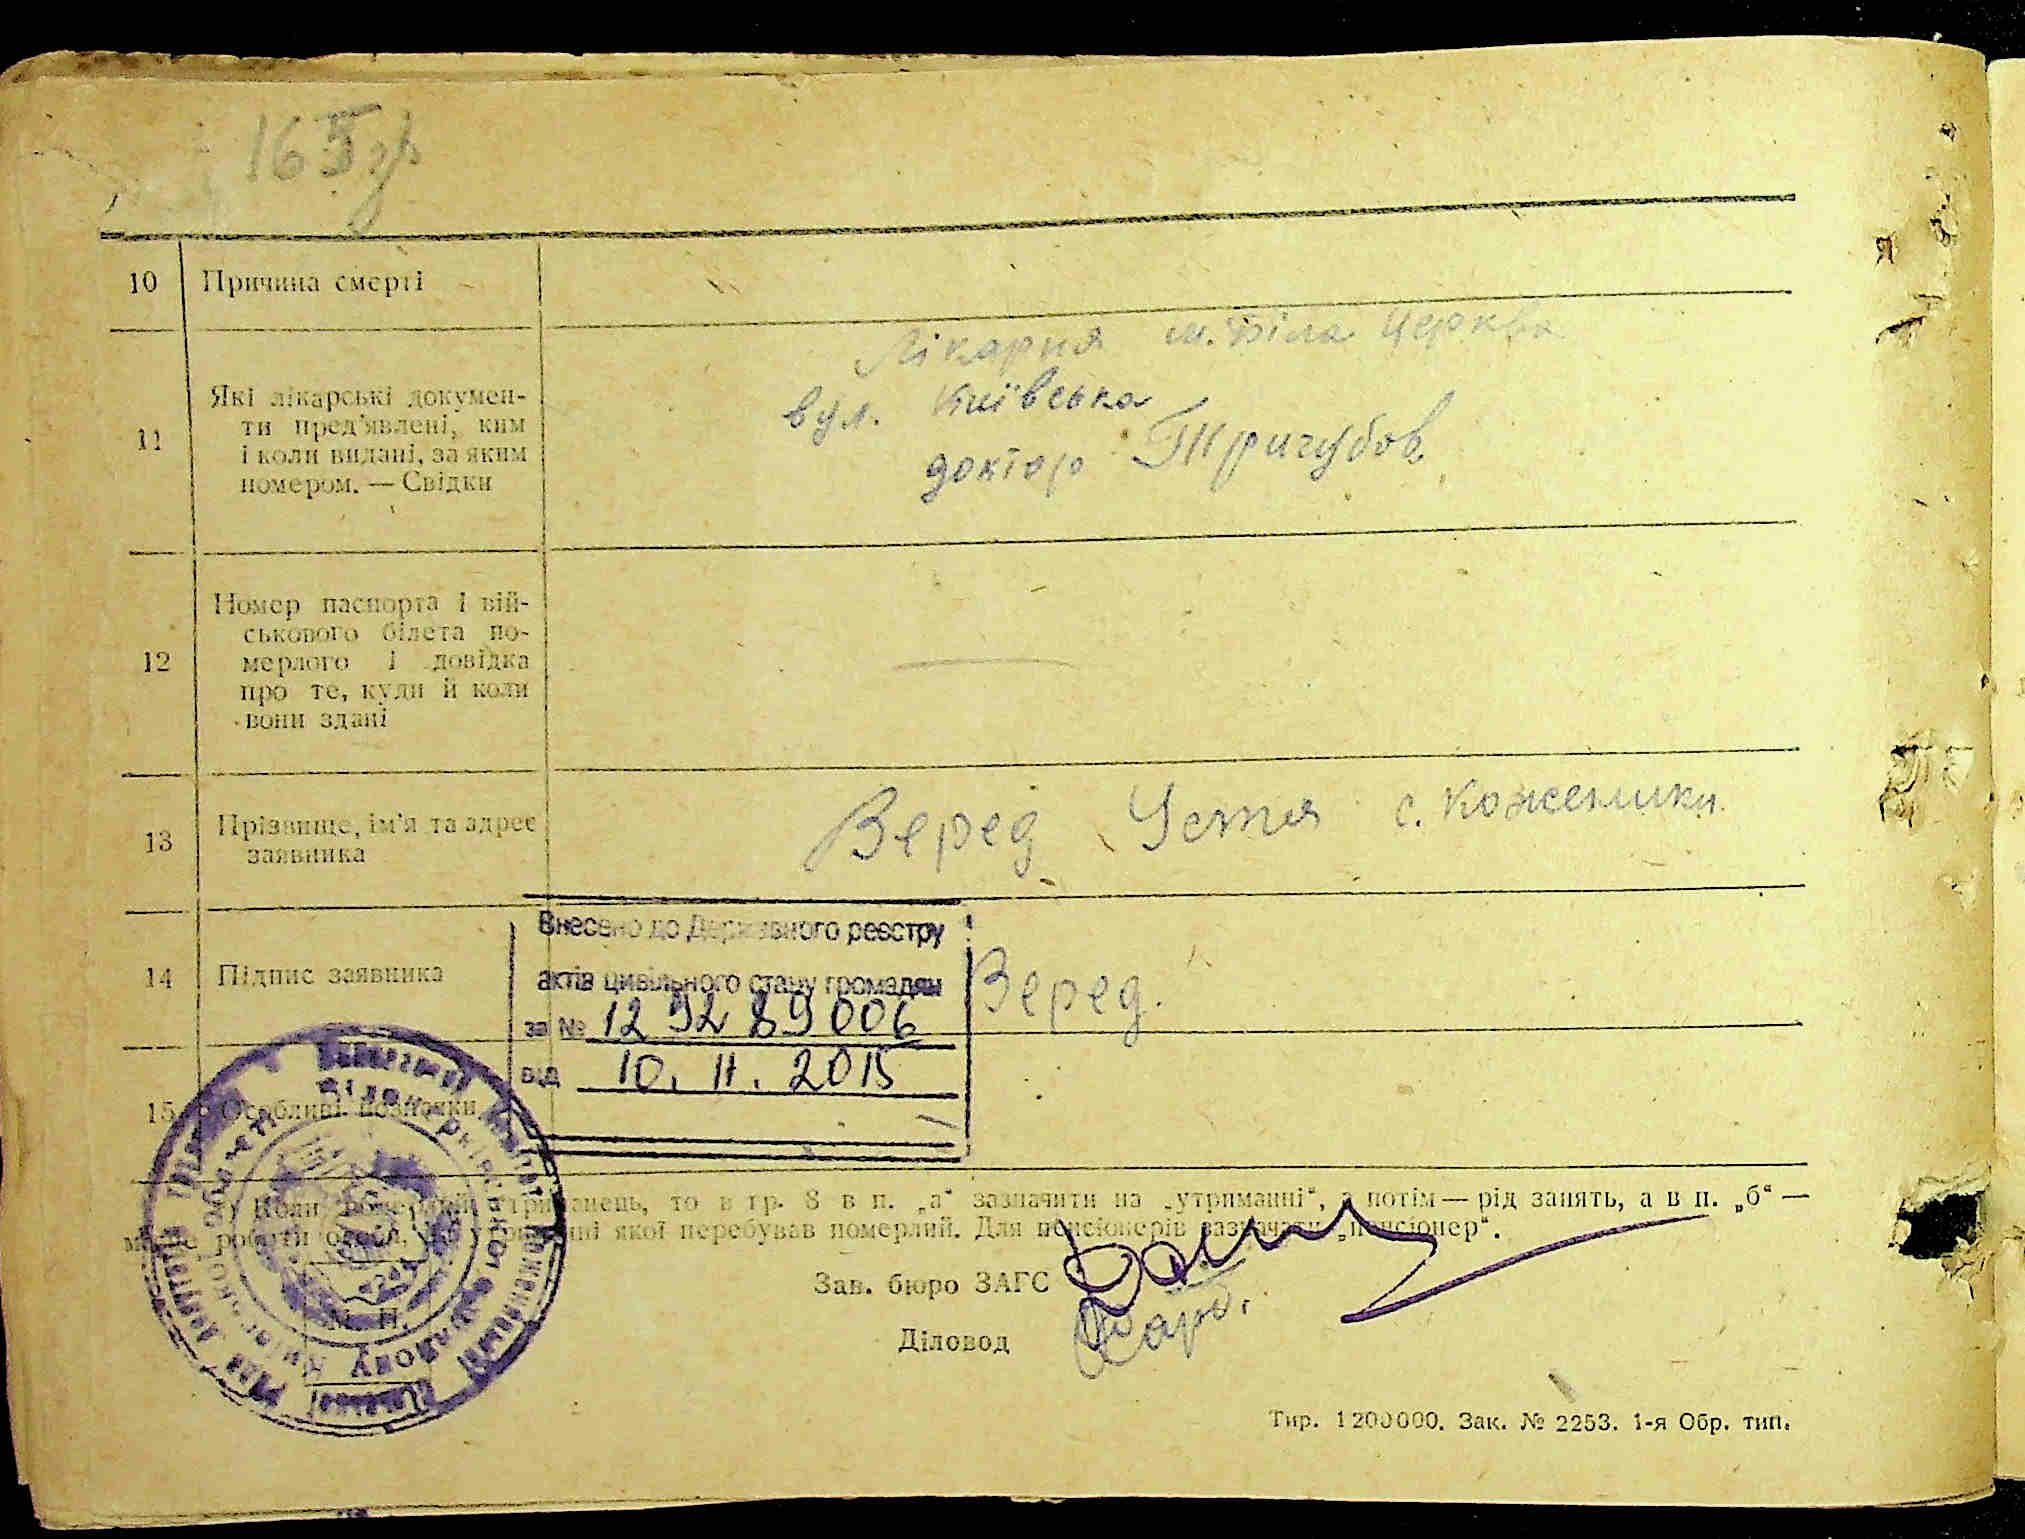 165 зв
10 Причина смерті
Лікарня м. Біла Церква
вул. Київська
доктор Тригубов.
11 Які лікарські докумен-
ти пред'явлені, ким
і коли видані, за яким
номером. — Свідки
12 Номер паспорта і вій-
ськового білета по-
мерлого і довідка
про те, куди й коли
вони здані
—
13 Прізвище, ім'я та адрес
заявника
Веред Устя с. Коженики
14 Підпис заявника
Веред.
Внесено до Державного реєстру
актів цивільного стану громадян
за № 12 92 89 006
від 10. 11. 2015
15 Особливі позначки
Коли померлий утриманець, то в гр. 8 в п. „а“ зазначити на „утриманні“, а потім — рід занять, а в п. „б“ —
місце роботи особи, на утриманні якої перебував померлий. Для пенсіонерів зазначати „пенсіонер“.
Зав. бюро ЗАГС
Діловод
М. П.
Тир. 1200000. Зак. № 2253. 1-я Обр. тип.